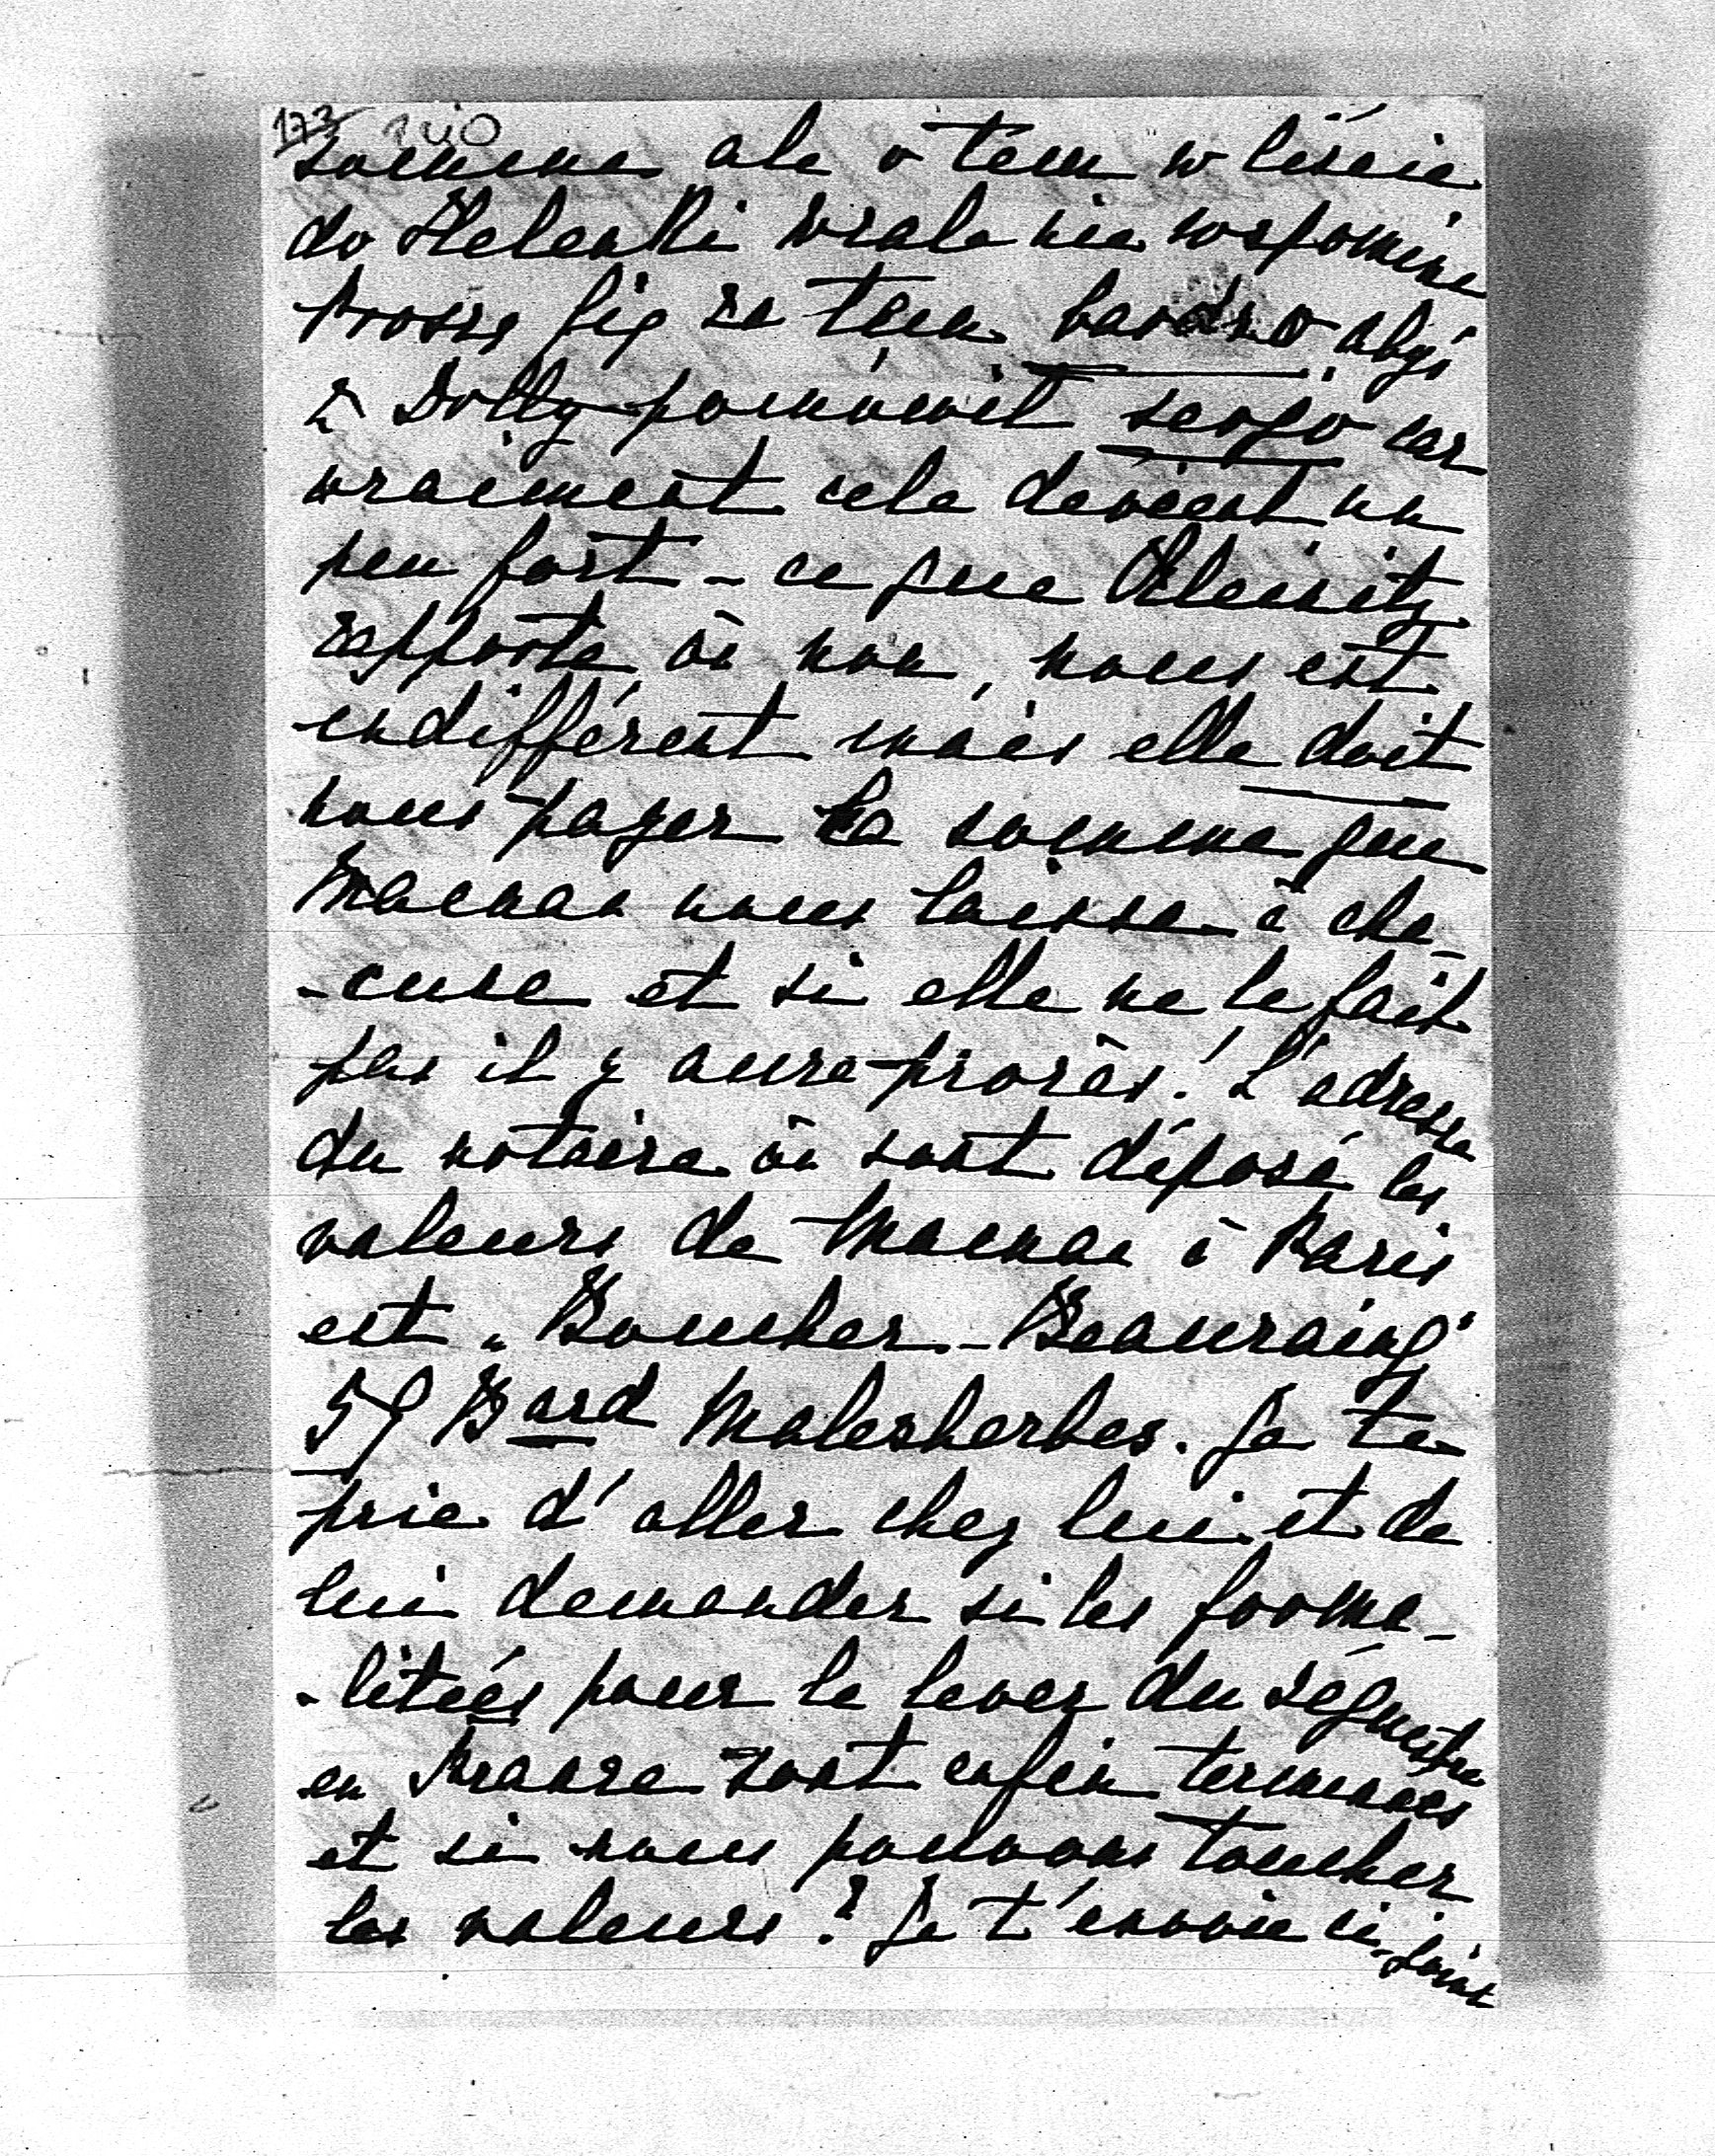 173
somme ale o tem w liście
do Helenki wcale nie wspomina
Proszę Cię za tem bardzo abyś
z Dolly pomówił serjo car
vraiment cela devient un
peu fort - ce que Kleinitz
rapporte où non, nous est
indifférent mais elle doit
nous payer la somme que
Maman nous laisse à cha-
-cune et si elle ne le fait
pas il y aura procès! L'adresse
du notaire où sont déposé les
valeurs de Maman à Paris
est „Boucher-Beauraing"
59 Bard Malesherbes. Je te
prie d'aller chez lui et de
lui demander si les forma-
-litées pour le lever du séquestre
en France sont enfin terminées
et si nous pouvons toucher
les valeurs? Je t'envoie ci-joint